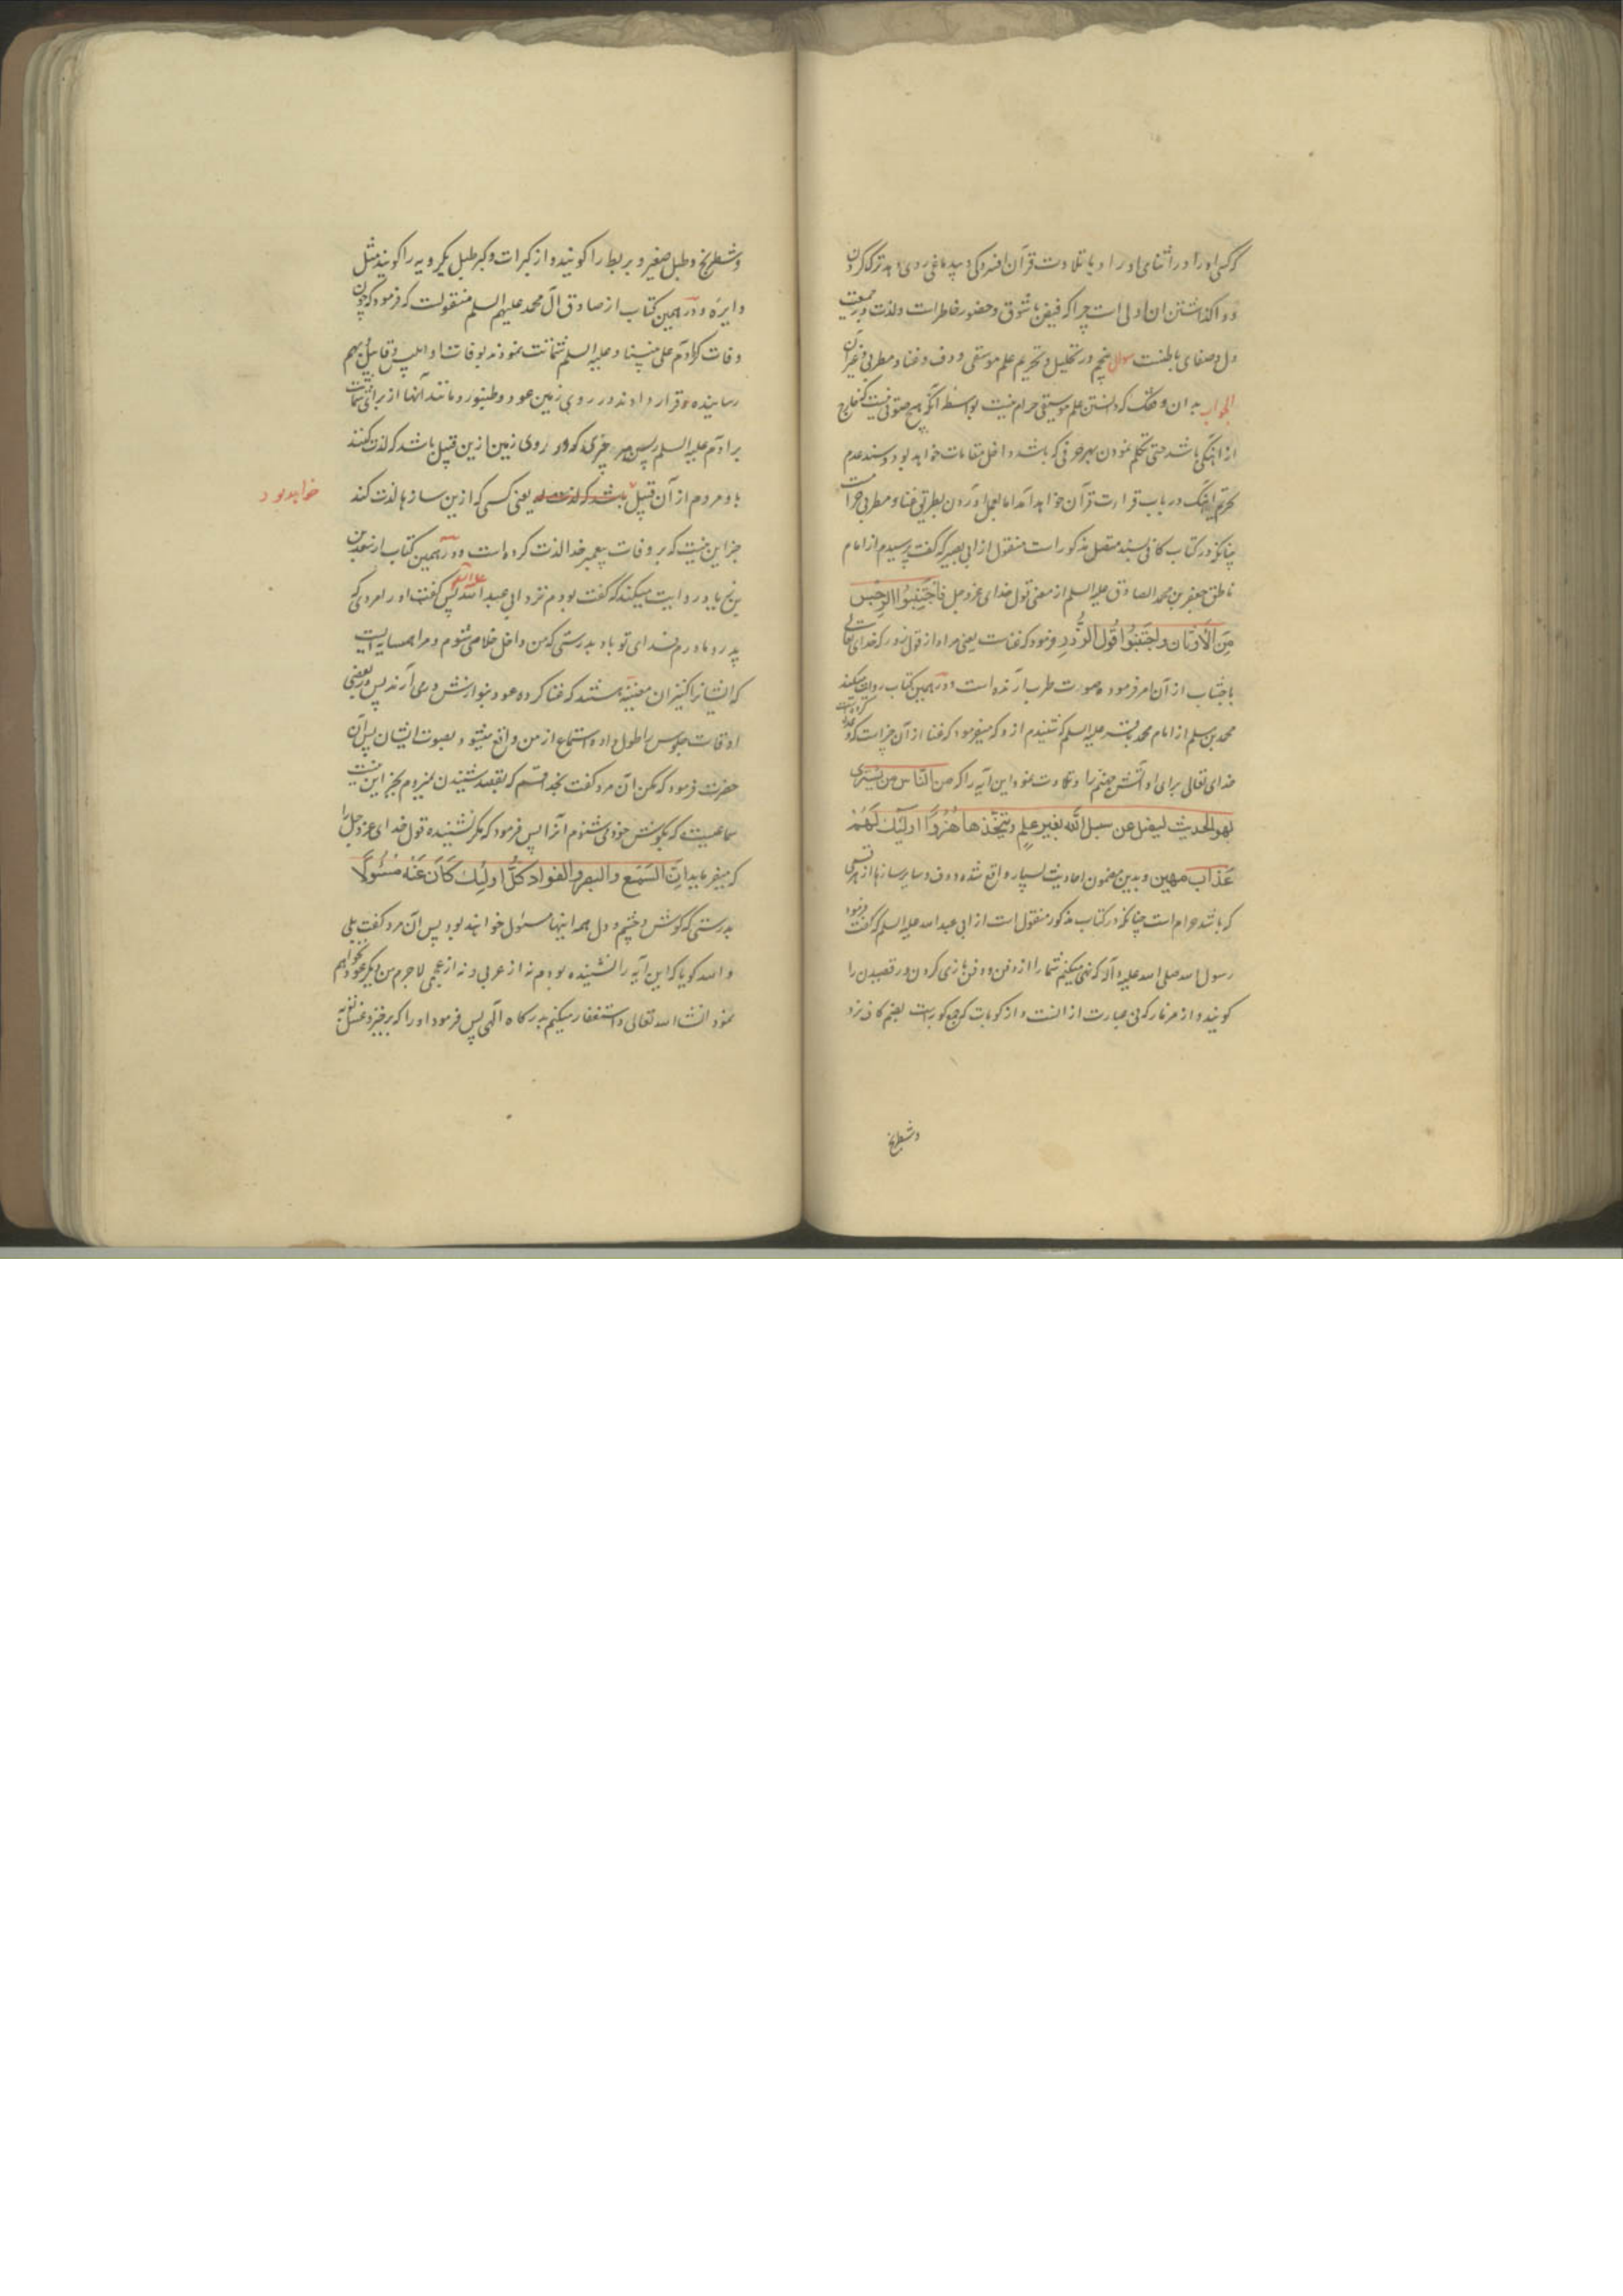 که کسی او را در اثنای اوراد یا تلاوت قرآن افسردگی و بیدماغی روی دهد ترک کردن
و واگذاشتن آن اولی است چرا که فیض با شوق و حضور خاطر است ولذت در جمعیت
دل و صفای باطنست سوال پنجم در تحلیل و تحریم علم موسیقی و دف و غنا و مطربی و غیر آن
الجواب بدان وفقک که دانستن علم موسیقی حرام نیست بواسطه آنکه هیچ صوتی نیست که خارج
از آهنگی باشد حتی تکلم نمودن بهر حرفی که باشد داخل مقامات خواهد بود و سند عدم
تحریم آهنگ در باب قرارت قرآن خواهد آمد اما بعمل آوردن بطریق غنا و مطربی حرامست
چنانکه در کتاب کافی بسند متصل مذکور است منقول از ابی بصیر که گفت پرسیدم از امام
ناطق جعفر بن محمد الصادق علیه السلم از معنی قول خدای عزوجل فَاجْتَنِبُوا الرِّجْسَ
مِنَ الْاَوْثَان وَاجْتَنِبُوا قَوْلَ الزُّورِ فرمود که غناست یعنی مراد از قول زور که خدای تعالی
باجتناب از آن امر فرموده صورت طرب آرنده است و در همین کتاب روایت میکند
محمد بن مسلم از امام محمد باقر علیه السلم که شنیدم ازو که میفرمود که غنا از آن چیزاست که وعده کرده است
خدای تعالی برای او آتش جهنم را و تلاوت نمود این آیه را که من الناس من یشتری
لهو الحدیث لیضل عن سبیل الله بغیر علم ویتخذها هُزُوًا اولئک لَهُمْ
عَذاب مهین و بدین مضمون احادیث بسیار واقع شده و دف و سایر سازها از هر قسمی
که باشد حرام است چنانکه در کتاب مذکور منقول است از ابی عبد الله علیه السلم که گفت فرمود
رسول الله صلی الله علیه و آله که نهی میکنم شما را از زفن و زفن بازی کردن و رقصیدن را
گویند و از مزمار که نی عبارت از انست و از کوبات که جمع کوبه است بضم کاف نرد
وشطرنج
وشطرنج و طبل صغیر و بربط را گویند و از کبرات و کبر طبل یکرویه را گویند مثل
دایره و در همین کتاب از صادق آل محمد علیهم السلم منقولست که فرمود که چون
وفات کرد آدم علی نبینا و علیه السلم شماتت نمودند بوفات او ابلیس و قابیل بهم
رسانیده و قرار دادند در روی زمین عود و طنبور و مانند آنها از برای شماتت
بر آدم علیه السلم پس هر چیزی که در روی زمین ازین قبیل باشد که لذت کنند
باو مردم از آن قبیل باشد که لذت یعنی کسی که ازین سازها لذت کند
خواهد بود
جز این نیست که بر وفات پیغمبر خدا لذت کرده است و در همین کتاب از مسعدة بن
زیاد روایت میکند که گفت بودم نزد ابی عبد الله علیه السلم پس گفت او را مردی که
پدر و مادرم فدای تو باد بدرستی که من داخل خلا می شوم و مرا همسایه ایست
که ایشانرا کنیزان مغنیه هستند که غنا کرده عود بنوازش درمی آرند پس در بعضی
اوقات جلوس را طول داده استماع از من واقع میشود بصوت ایشان پس آن
حضرت فرمود که مکن آن مرد گفت بخدا قسم که بقصد شنیدن نمیروم بجز این نیست
سماعیست که بگوش خود می شنوم آنرا پس فرمود که مگر نشنیده قول خدای عزوجل را
که میفرماید اِنَّ السَّمْعَ والبصر والفواد کُلُّ اولئک کَانَ عَنْهُ مَسْئُولًا
بدرستی که گوش و چشم و دل همه اینها مسئول خواهند بود پس آن مرد گفت بلی
والله گویا که این آیه را نشنیده بودم نه از عربی و نه از عجمی لاجرم من دیگر عود نخواهم
نمود انشاء الله تعالی و استغفار میکنم بدرگاه الهی پس فرمود او را که برخیز و غسل